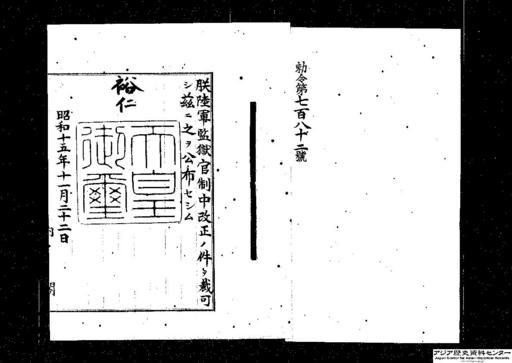 勅令第七百八十二號
朕陸軍監獄官制中改正ノ件ヲ裁可
シ茲ニ之ヲ公布セシム
裕仁
天皇
御璽
昭和十五年十一月二十二日
内 閣
アジア歴史資料センター
Japan Center for Asian Historical Records